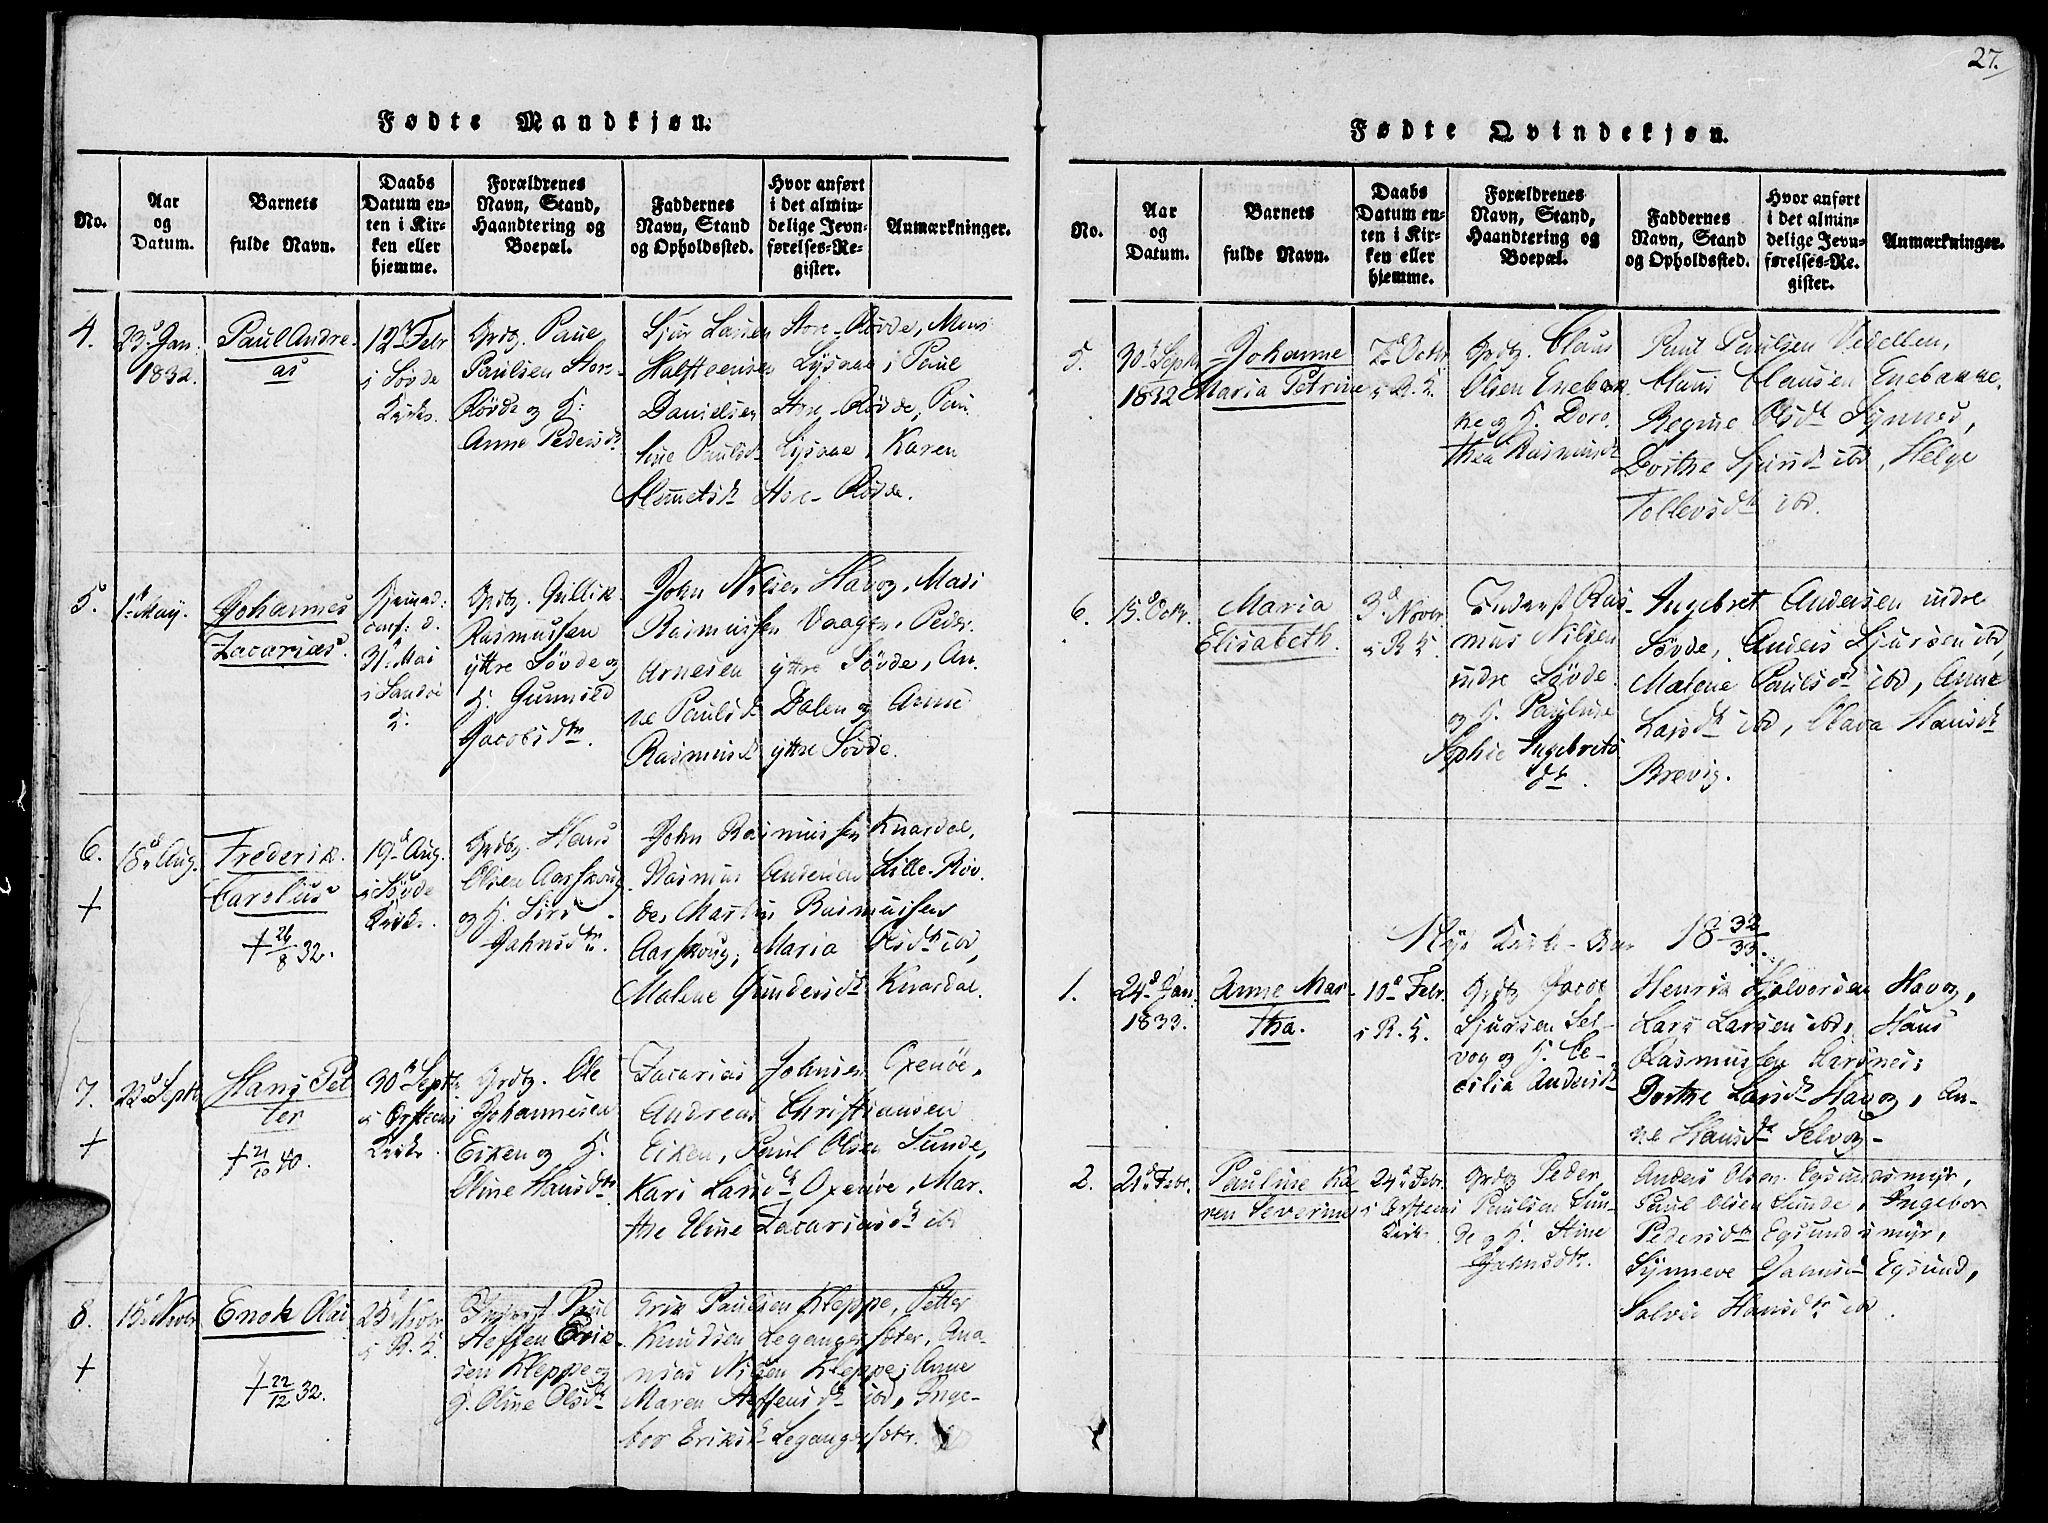 27.
Fødte Mandkjøn.
No.
Aar og Datum.
Barnets fulde Navn.
Daabs Datum enten i Kirken eller hjemme.
Forældrenes Navn, Stand, Haandtering og Boepæl.
Faddernes Navn, Stand og Opholdssted.
Hvor anført i det almindelige Jevnførelses-Register.
Anmærkninger.
4.
23d Jan.
1832.
Paul Andre-
as
12te Febr
i Søvde
Kirke.
Grdbr. Paul
Paulsen Store-
Røvde og H:
Anne Pedersdtr
Sjur Larsen Store-Røvde, Mons
Halfteensen Lysvae, Paul
Danielsen Store-Røvde, Pau-
line Paulsdtr Lysvae, Karen
Klemetsdtr Store-Røvde.
5.
1te May.
Johannes
Zacarias.
Hjemmed:
conf: d.
31te Mai
i Sandøe
K:
Grdbr. Gullik
Rasmussen
yttre Søvde og
H. Gunnild
Jacobsdtr.
John Nilsen Havog, Mads
Rasmussen Vaagen, Peder
Arnesen yttre Søvde, An-
ne Paulsdtr Dalen og Anne
Rasmusdtr yttre Søvde.
6.
+
18d Aug.
Frederik
Carolus
+ 26/8 32.
19d Aug.
i Søvde
Kirke.
Grdbr. Hans
Olsen Aarskoug
og H. Siri
Jahnsdtr.
John Rasmussen Knardal,
Rasmus Andersen Lille-Røv-
de, Martin Rasmussen
Aarskoug, Maria Olsdtr ibd,
Malene Gundersdtr Knardal.
7.
+
22d Septbr
Hans Pet-
ter
+ 21/10 40.
30te Septbr
i Ørsteens
Kirke.
Grdbr. Ole
Johannesen
Eiken og H.
Oline Hansdtr.
Zacarias Johnsen Oxenøe,
Andreas Christiansen
Eiken, Paul Olsen Sunde,
Kari Larsdtr Oxenøe, Mar-
the Eline Zacariasdtr ibd
8.
+
15d Novbr
Enok Olai
+ 22/12 32.
25d Novbr
i R. K.
Inderst Paul
Steffen Erik-
sen Kleppe og
H. Oline Olsdtr
Erik Paulsen Kleppe, Petter
Knudsen Legangersæter, Ana-
nias Nilsen Kleppe, Anne
Maren Steffensdtr ibd, Inge-
bor Eriksdtr Legangersæter.
Fødte Qvindekjøn.
No.
Aar og Datum.
Barnets fulde Navn.
Daabs Datum enten i Kirken eller hjemme.
Forældrenes Navn, Stand, Haandtering og Boepæl.
Faddernes Navn, Stand og Opholdssted.
Hvor anført i det almindelige Jevnførelses-Register.
Anmærkninger.
5.
30d Septbr
1832
Johanne
Maria Petrine
7de Octbr
i R. K.
Grdbr. Claus
Olsen Enebak-
ke og H. Doro-
thea Rasmusdtr
Paul Paulsen Vedellen,
Claus Clausen Enebakke,
Regine Olsdtr Synnes,
Dorthe Sjursdtr ibd, Helge
Tollevsdtr ibd.
6.
15d Octbr.
Maria
Elisabeth.
3d Novbr
i R K.
Inderst Ras-
mus Nilsen
indre Søvde
og H. Pauline
Sophie Ingebrets
dtr.
Ingebret Andersen indre
Søvde, Anders Sjursen ibd,
Malene Paulsdtr ibd, Anne
Larsdtr ibd, Olava Hansdtr
Brevig.
Nyt Kirke-Aar 18 32/33.
1.
24d Jan.
1833.
Anne Mar-
tha.
10d Febr.
i R. K.
Grdbr Jacob
Sjursen Sel-
vog og H. Ce-
cilia Andersdtr
Henrik Halvorsen Havog,
Lars Larsen ibd, Hans
Rasmussen Aarsnes,
Dorthe Larsdtr Havog, An-
ne Hansdtr Selvog
2.
21d Febr.
Pauline Ka-
ren Severine
24d Febr.
i Ørsteens
Kirke.
Grdbr Peder
Paulsen Sun-
de og H. Stine
Jahnsdtr.
Anders Olsen Egsundsmyr,
Paul Olsen Sunde, Ingebor
Pedersdtr Egsundsmyr,
Synneve Jahnsdtr Egsund,
Salvei Hansdtr ibd.